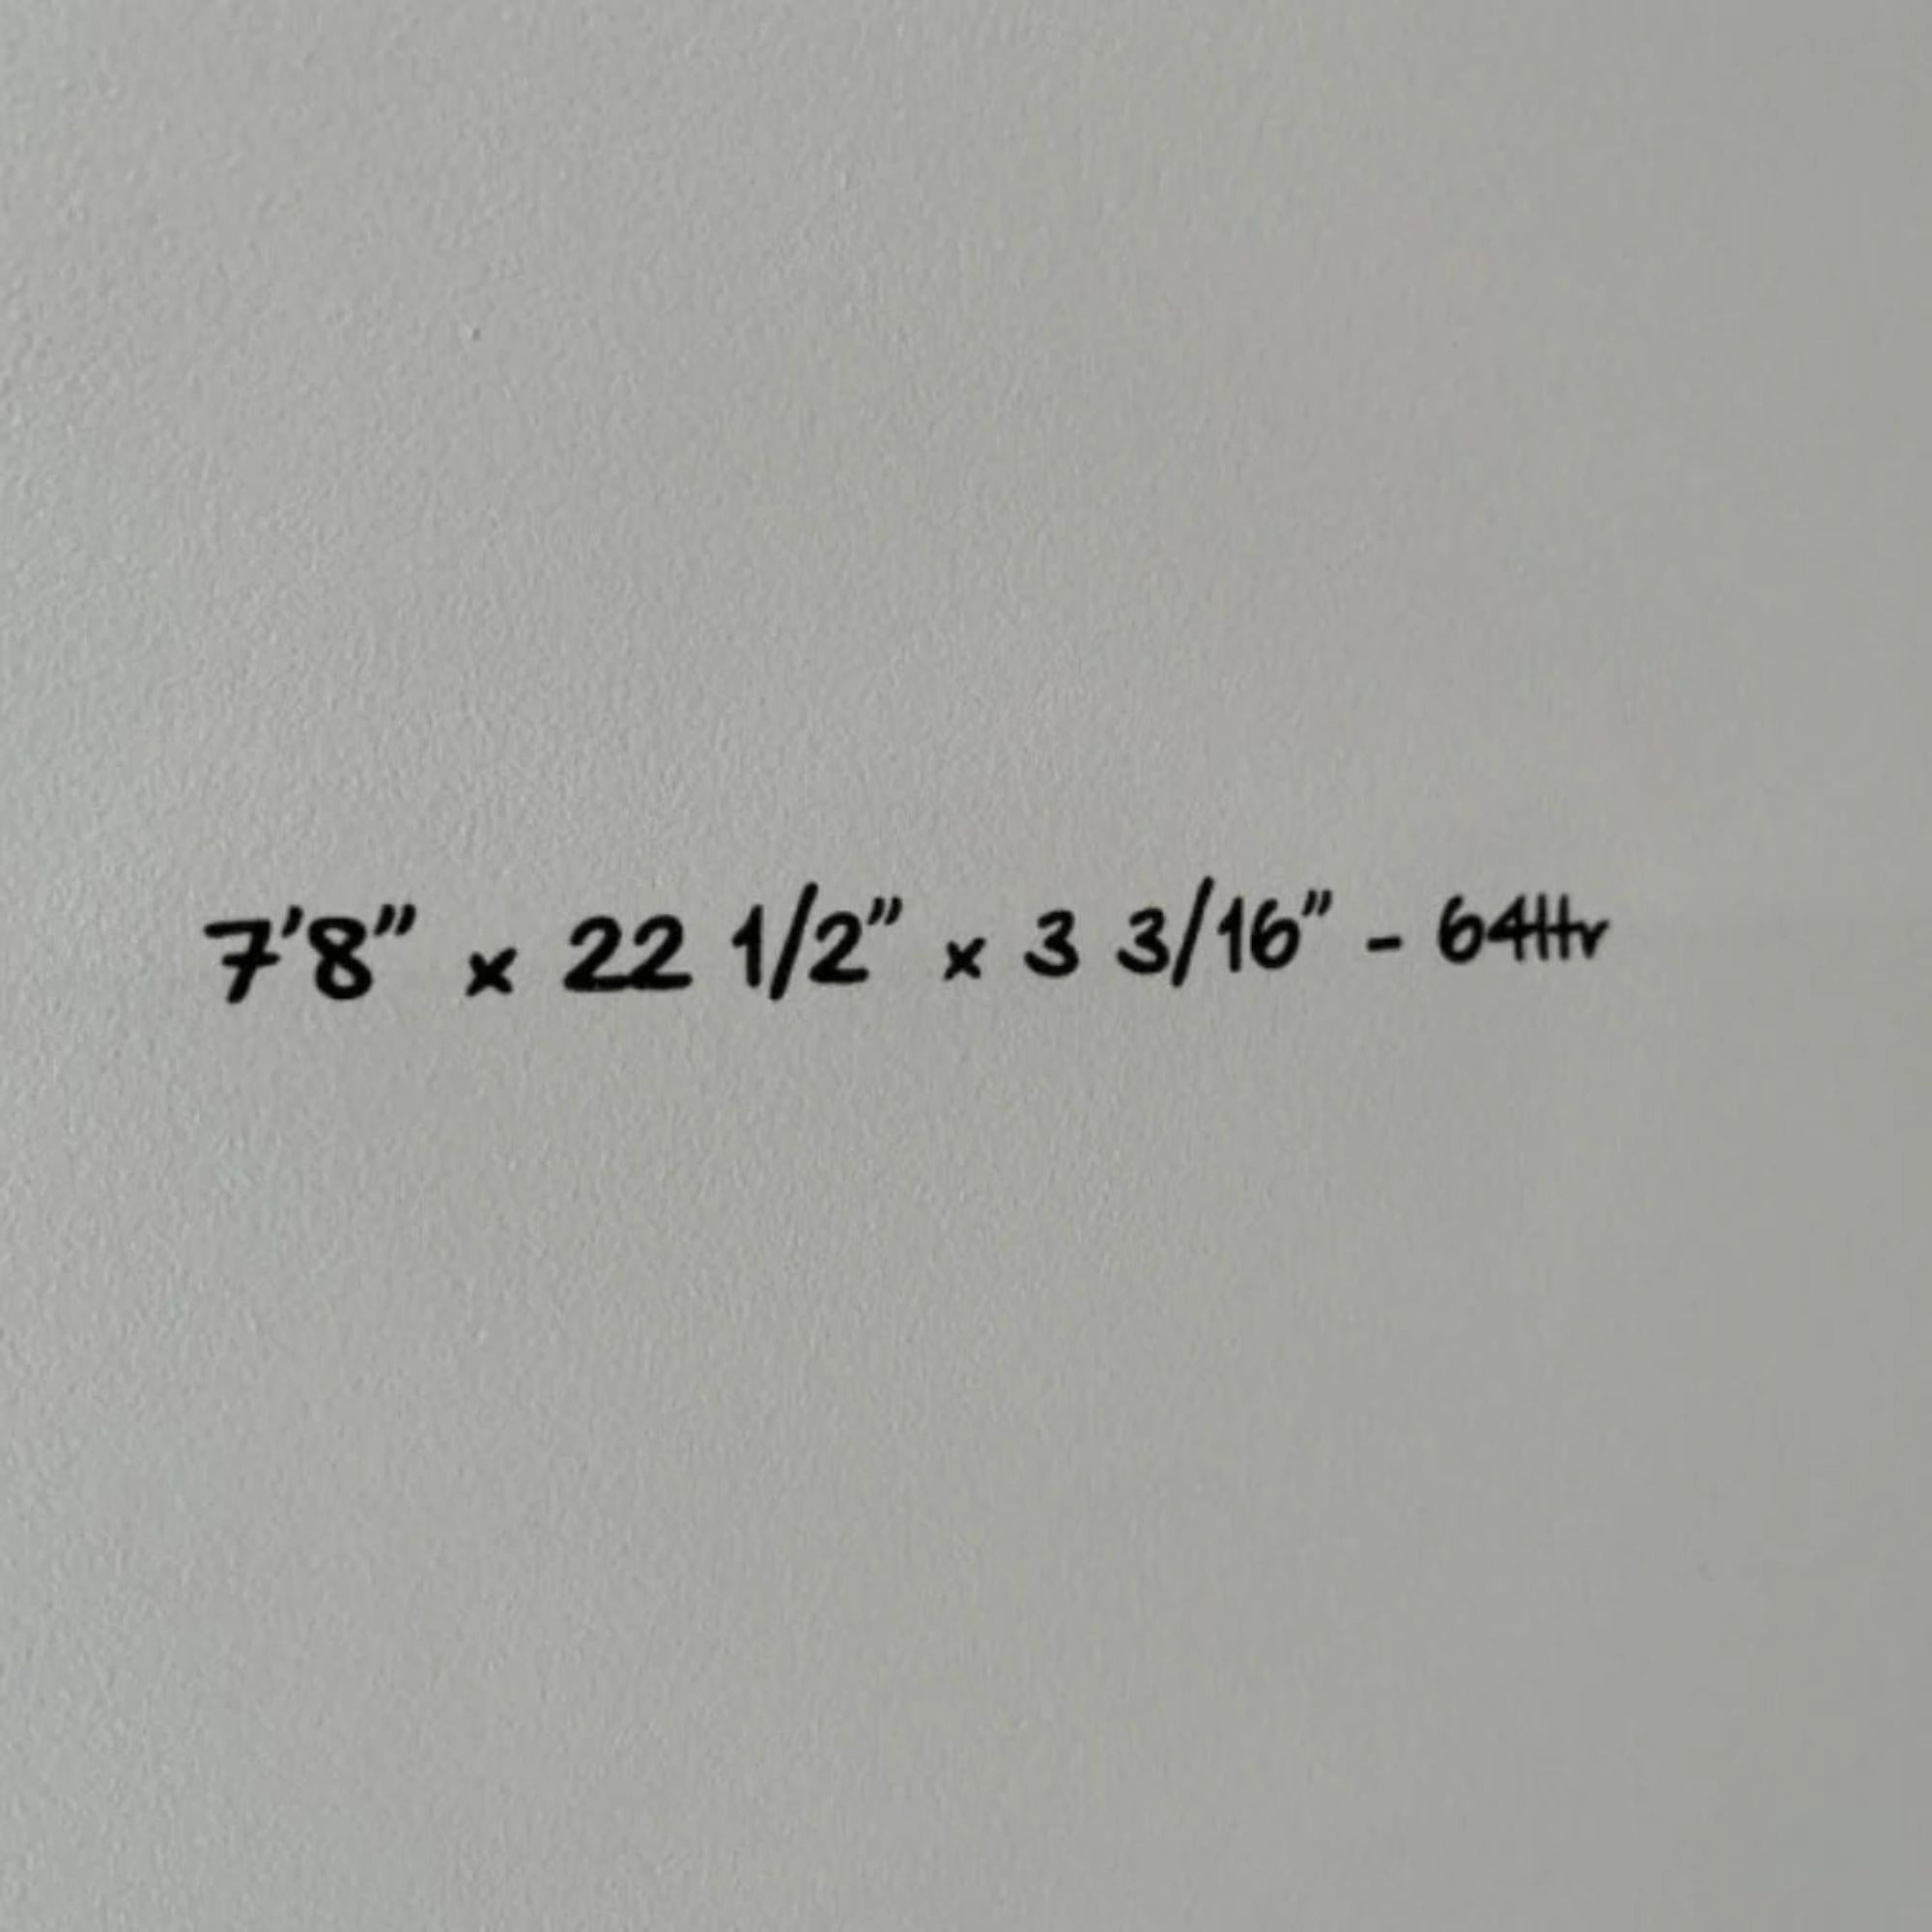 7'8" x 22 1/2" x 3 3/16" - 64Hr